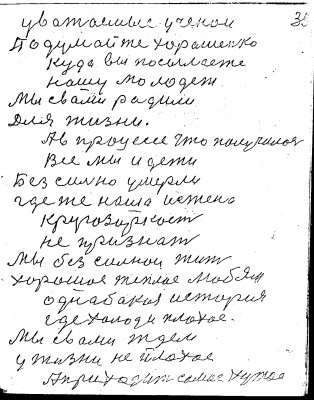 уважаемые ученои 35
Подумайте хорошенко
Куда вы посылаете
нашу молодеж
Мы свами радили
Для жизни.
Ав процесе что получился
Все мы и дети
Без силно умерли
где же наша истена
Кругозоркост
не признат
Мы без силнои жит
хорошое теплое
однабакая история
где холод и плохое.
Мы свами ждем
у жизни не плохое
Априходит самое хужое